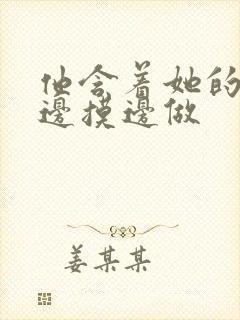 他含着她的
边摸边做
姜某某